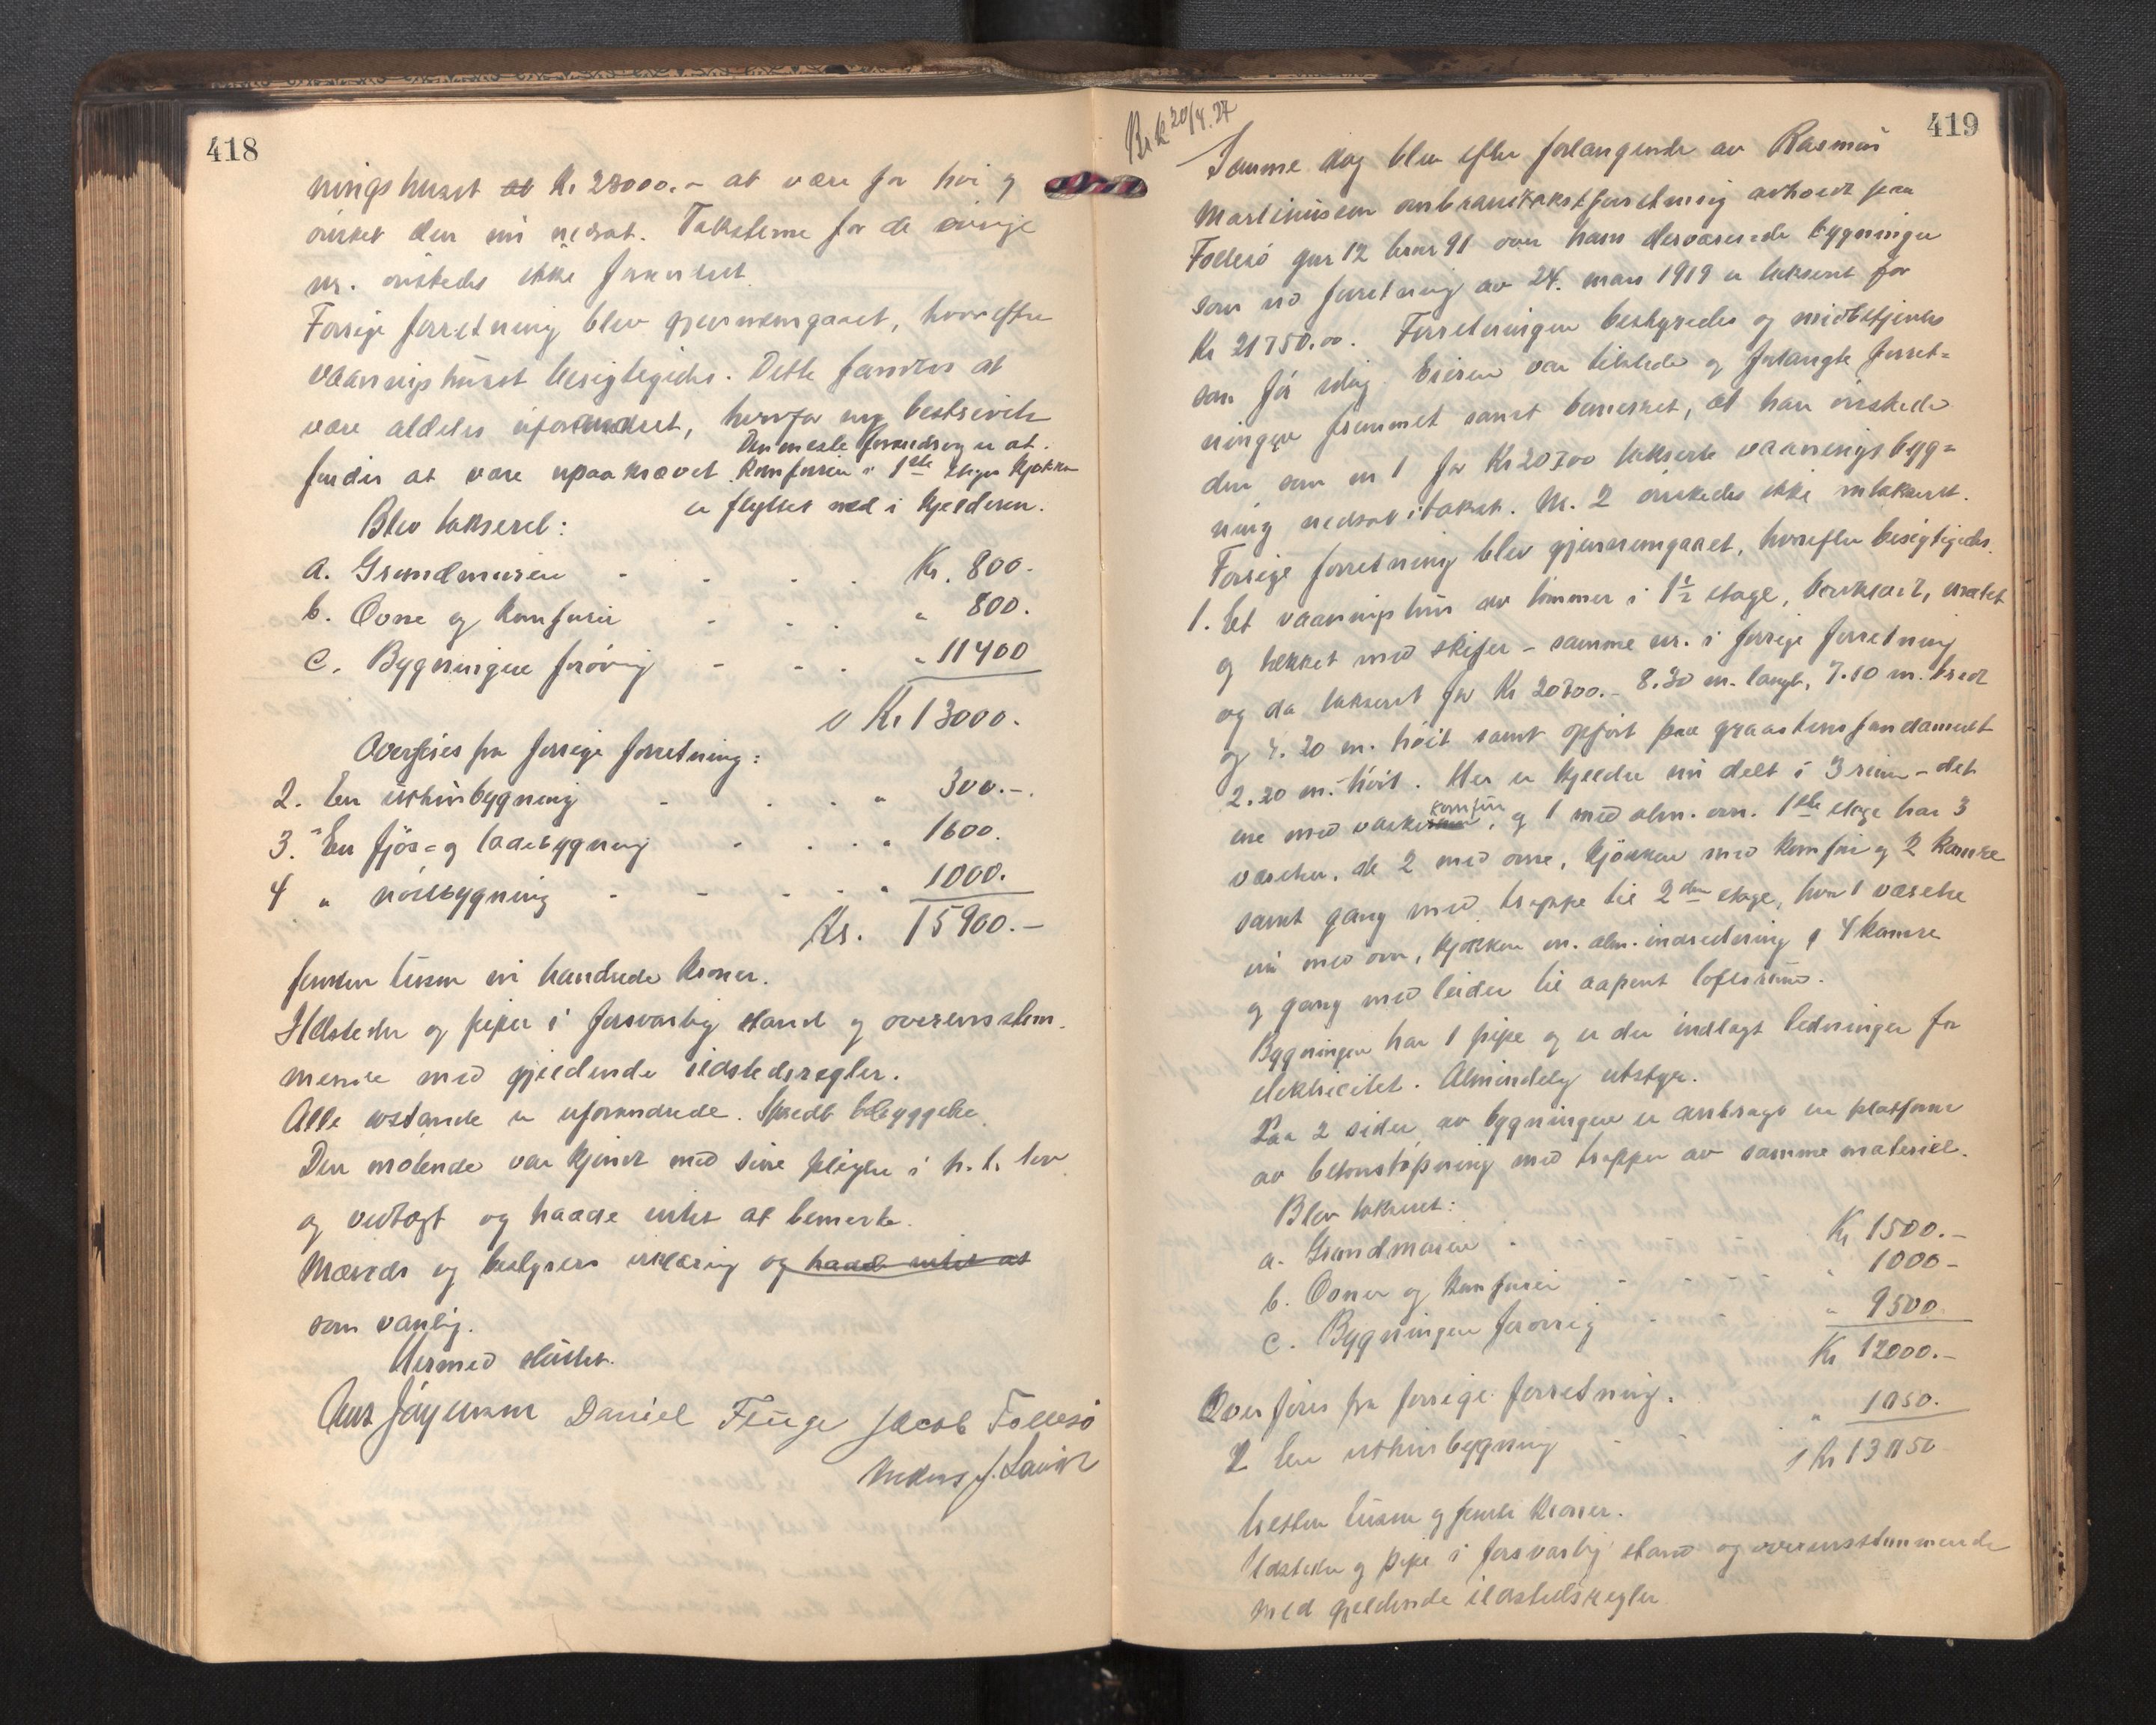 418
ningshuset at Kr 28000.- at være for høi og
ønsket den nu nedsat. Taksterne for de øvrige
nr. ønskedes ikke forandret.
Forrige forretning blev gjennemgaaet, hvorefter
vaaningshuset besigtigedes. Dette fandtes at
være aldeles uforandret, hvorfor ny beskrivelse
Den eneste forandring er at
fandtes at være upaakrævet. Komfuren i 1ste etages kjøkken
er flyttet ned i kjelderen.
Blev taksert:
a. Grundmuren - - - Kr. 800.-
b. Ovne og komfurer - - - " 800.
c. Bygningen forøvrig - - - " 11400
Kr 13000.
Overføres fra forrige forretning:
2. En uthusbygning - - - " 300.-
3. En fjøs- og ladebygning - - - " 1600.
4 " nøstbygning - - - " 1000.
Kr. 15900.-
femten tusen ni hundrede kroner.
Ildsteder og piper i forsvarlig stand og overensstem-
mende med gjeldende ildstedsregler.
Alle avstande er uforandrede. Spredt bebyggelse.
Den møtende var kjendt med sine pligter i h. t. lov
og vedtægt og hadde intet at bemerke.
Mænds og bestyrers erklæring og hadde intet at
som vanlig.
Hermed sluttet.
Daniel Fluge Jacob Follesø
419
Br.k 20/4.27
Samme dag blev efter forlangende av Rasmus
Martinussen ombrandtakstforretning avholdt paa
Follesø gnr 12 brnr 91 over hans derværende bygninger
som ved forretning av 24. mars 1919 er taksert for
Kr 21750.00. Forretningen bestyredes og medbetjentes
som før idag. Eieren var tilstede og forlangte forret-
ningen fremmet samt bemerket, at han ønskede
den som nr 1 for Kr 20700 takserte vaaningsbyg-
ning nedsat i takst. Nr. 2 ønskedes ikke omtaksert.
Forrige forretning blev gjennemgaaet, hvorefter besigtigedes.
1. Et vaaningshus av tømmer i 1½ etage, bordklædt, malet
og tækket med skifer - samme nr. i forrige forretning
og da taksert for Kr 20700.- 8.30 m. langt, 7.10 m. bredt
og 4.20 m. høit samt opført paa graastensfundament
2.20 m. høit. Her er kjelder nu delt i 3 rum - det
komfur
ene med vaske, og 1 med alm. ovn. 1ste etage har 3
værelser, de 2 med ovne, kjøkken med komfur og 2 kamre
samt gang med trappe til 2den etage, hvor 1 værelse
nu med ovn, kjøkken m. alm. indredning og 4 kamre
og gang med leider til aapent loftsrum.
Bygningen har 1 pipe og er der indlagt ledninger for
elektricitet. Almindelig utstyr.
Paa 2 sider av bygningen er anbragt en platform
av betonstøpning med trapper av samme materiel.
Blev taksert:
a. Grundmuren - Kr 1500.-
b. Ovner og komfurer - - - 1000-
c. Bygningen forøvrig - - " 9500
Kr 12000.-
Overføres fra forrige forretning.
2 En uthusbygning - - - " 1050.
Kr 13050
tretten tusen og femti kroner.
Ildsteder og pipe i forsvarlig stand og overensstemmende
med gjeldende ildstedsregler